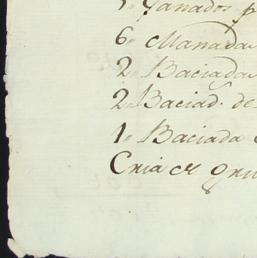 Ganados p
6 Manada
2 Baciada
2 Baciad. de
1 Baciada
Cria